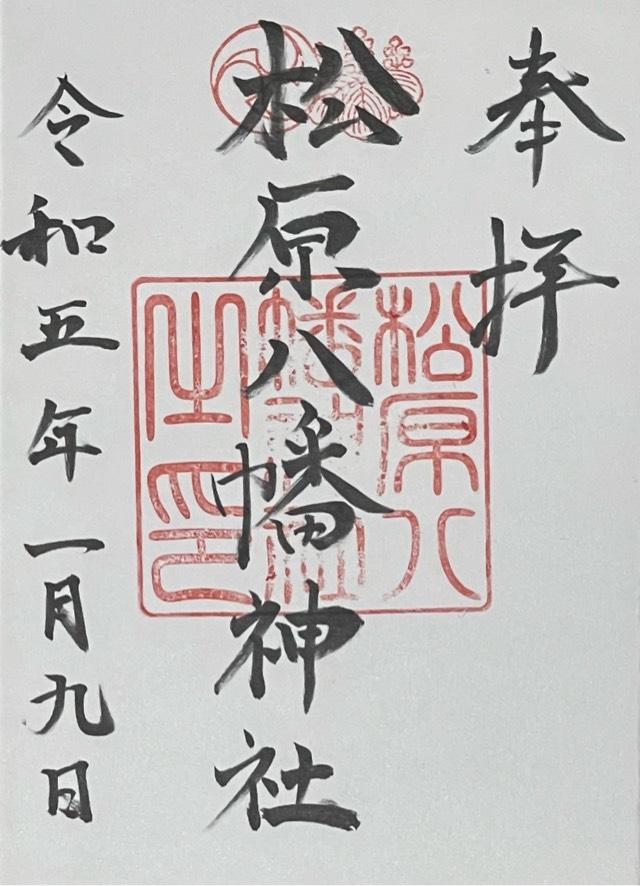 奉拝
松原八幡神社
松原八
幡神社
之印
令和五年一月九日